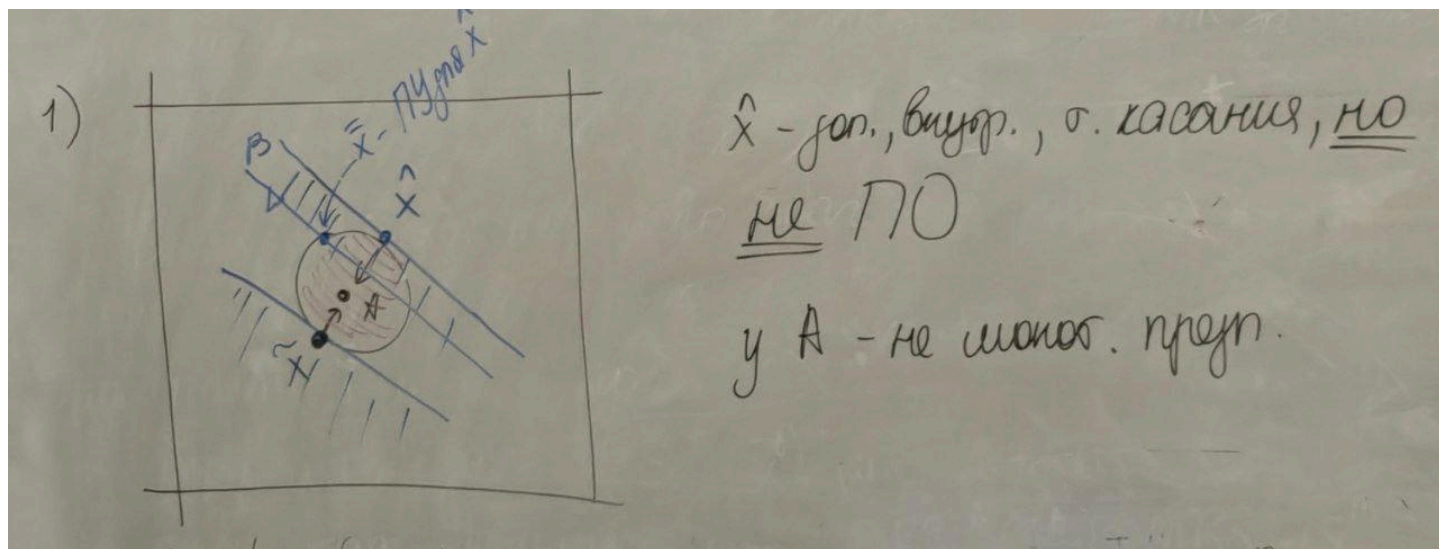 1)
x̿ - ПУ для x̂
B
x̂
A
x̃
x̂ - доп., внутр., т. касания, но
не ПО
у A - не монот. предп.